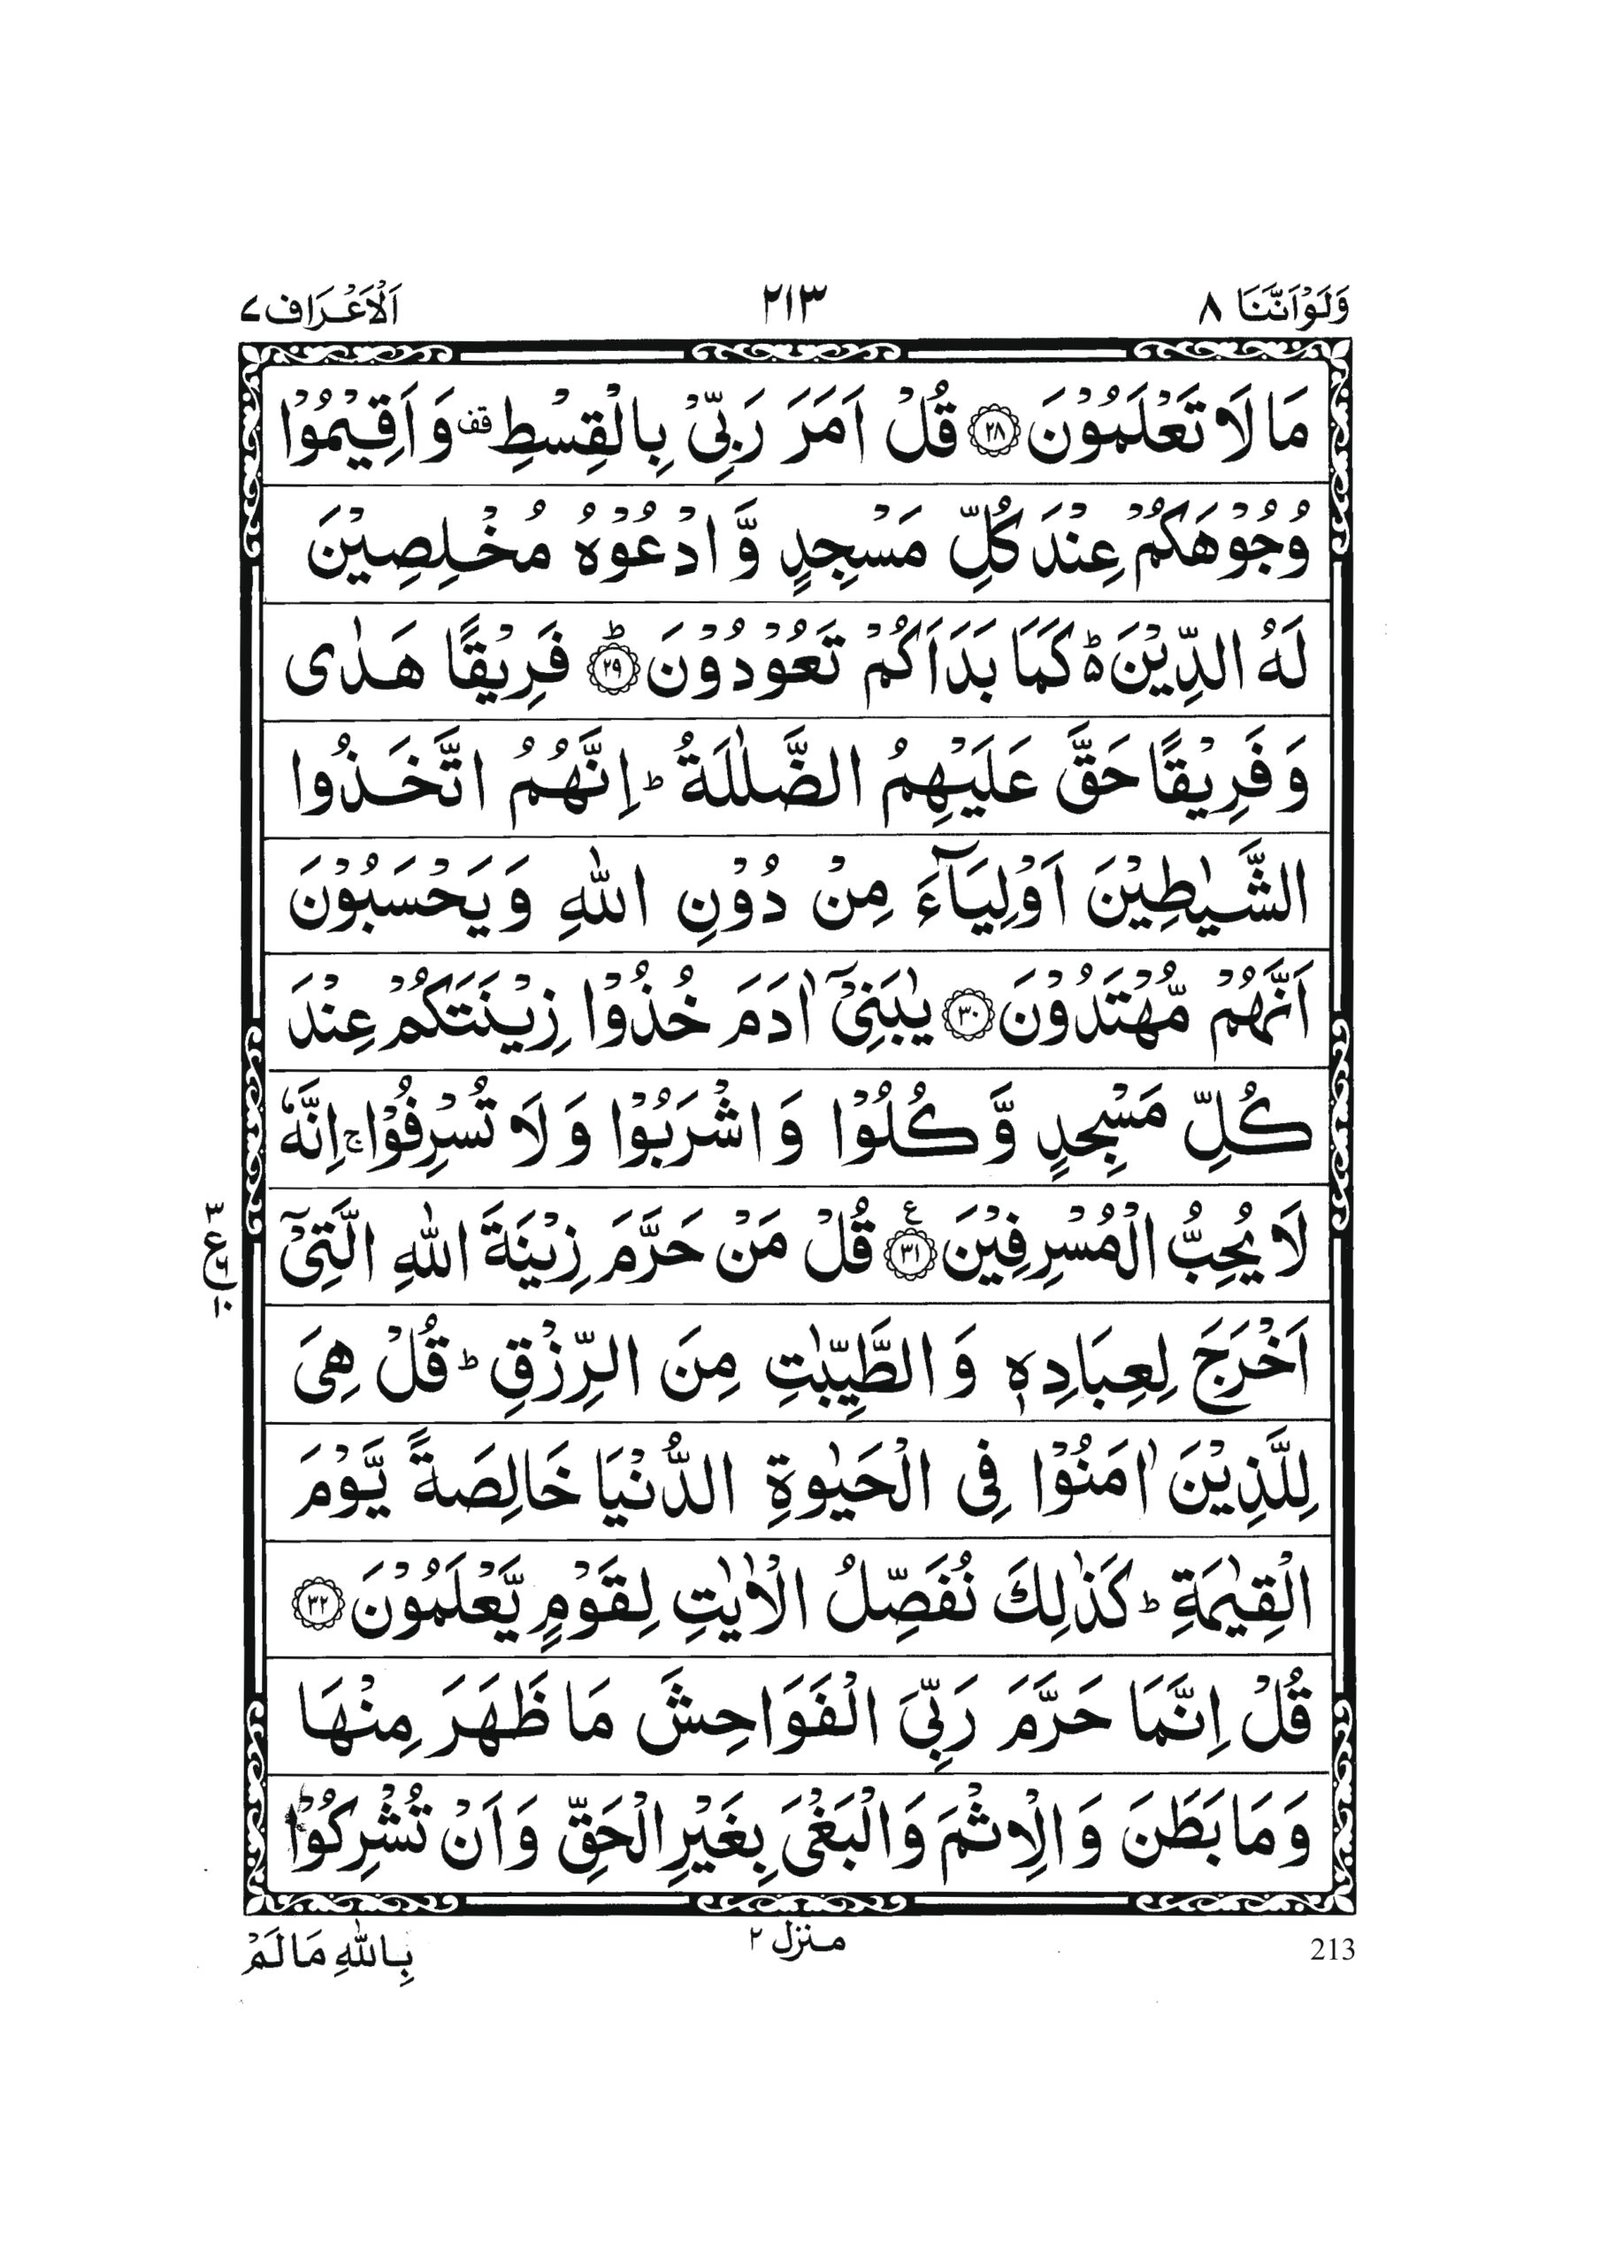 وَلَوْاَنَّنَا ٨
٢١٣
اَلْاَعْرَاف ٧
مَا لَا تَعْلَمُوْنَ ۝٢٨ قُلْ اَمَرَ رَبِّیْ بِالْقِسْطِ قف وَ اَقِیْمُوْا
وُجُوْهَكُمْ عِنْدَ كُلِّ مَسْجِدٍ وَّ ادْعُوْهُ مُخْلِصِیْنَ
لَهُ الدِّیْنَ ؕ۬ كَمَا بَدَاَكُمْ تَعُوْدُوْنَ ۝٢٩ؕ فَرِیْقًا هَدٰی
وَ فَرِیْقًا حَقَّ عَلَیْهِمُ الضَّلٰلَةُ ؕ اِنَّهُمُ اتَّخَذُوا
الشَّیٰطِیْنَ اَوْلِیَآءَ مِنْ دُوْنِ اللّٰهِ وَ یَحْسَبُوْنَ
اَنَّهُمْ مُّهْتَدُوْنَ ۝٣٠ یٰبَنِیْۤ اٰدَمَ خُذُوْا زِیْنَتَكُمْ عِنْدَ
كُلِّ مَسْجِدٍ وَّ كُلُوْا وَ اشْرَبُوْا وَ لَا تُسْرِفُوْا ۚ اِنَّهٗ
لَا یُحِبُّ الْمُسْرِفِیْنَ ۝٣١ ع قُلْ مَنْ حَرَّمَ زِیْنَةَ اللّٰهِ الَّتِیْۤ
٣
ع
٦
١٠
اَخْرَجَ لِعِبَادِهٖ وَ الطَّیِّبٰتِ مِنَ الرِّزْقِ ؕ قُلْ هِیَ
لِلَّذِیْنَ اٰمَنُوْا فِی الْحَیٰوةِ الدُّنْیَا خَالِصَةً یَّوْمَ
الْقِیٰمَةِ ؕ كَذٰلِكَ نُفَصِّلُ الْاٰیٰتِ لِقَوْمٍ یَّعْلَمُوْنَ ۝٣٢
قُلْ اِنَّمَا حَرَّمَ رَبِّیَ الْفَوَاحِشَ مَا ظَهَرَ مِنْهَا
وَ مَا بَطَنَ وَ الْاِثْمَ وَ الْبَغْیَ بِغَیْرِ الْحَقِّ وَ اَنْ تُشْرِكُوْا
213
منزل ٢
بِاللّٰهِ مَا لَمْ